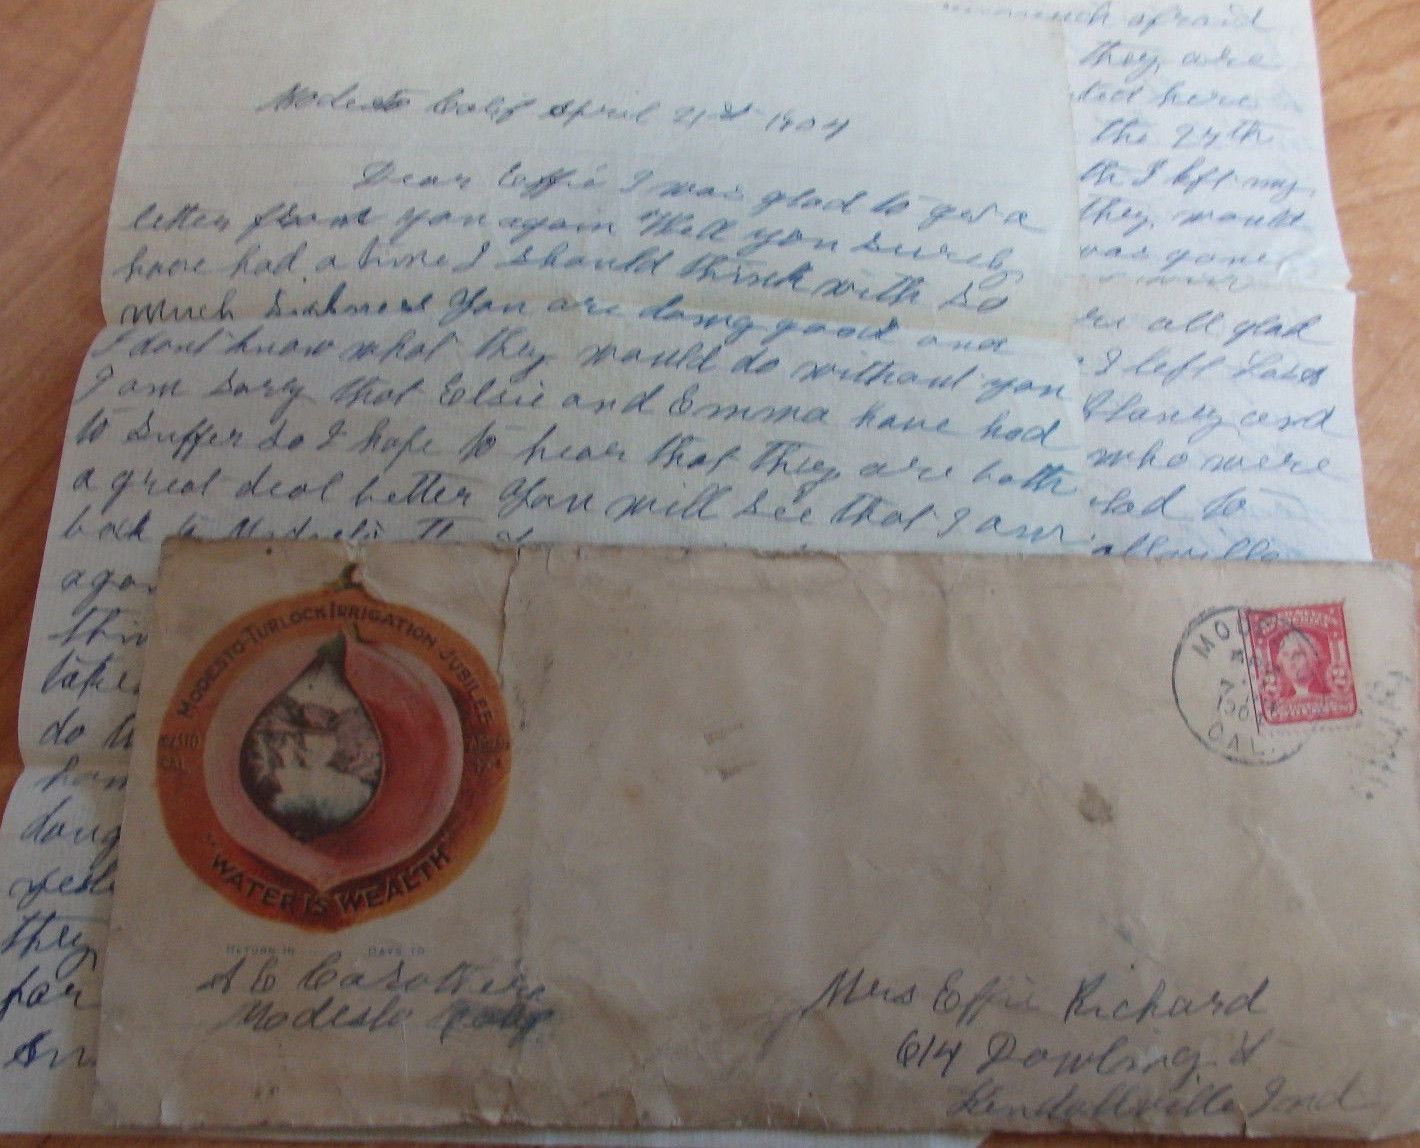 Modesto Calif April 21st 1904
Dear Effie I was glad to get a
letter from you again Well you surely
have had a time I should think with so
much sickness You are doing good and
I dont know what they would do without you
I am sorry that Elsie and Emma have had
to suffer so I hope to hear that they are both
a great deal better You will see that I am
back to Modesto
ago
thin
take
do
ham
daug
yeste
they
par
afraid
they are
ted here
the 24th
th I left my
they would
was gone
all glad
I left Las
and
who were
lad to
allville
MODESTO-TURLOCK IRRIGATION JUBILEE
"WATER IS WEALTH"
RETURN IN DAYS TO
A E Carothers
Modesto Calif
MO
CAL.
2 2
Mrs Effie Richard
614 Dowling St
Kendallville Ind